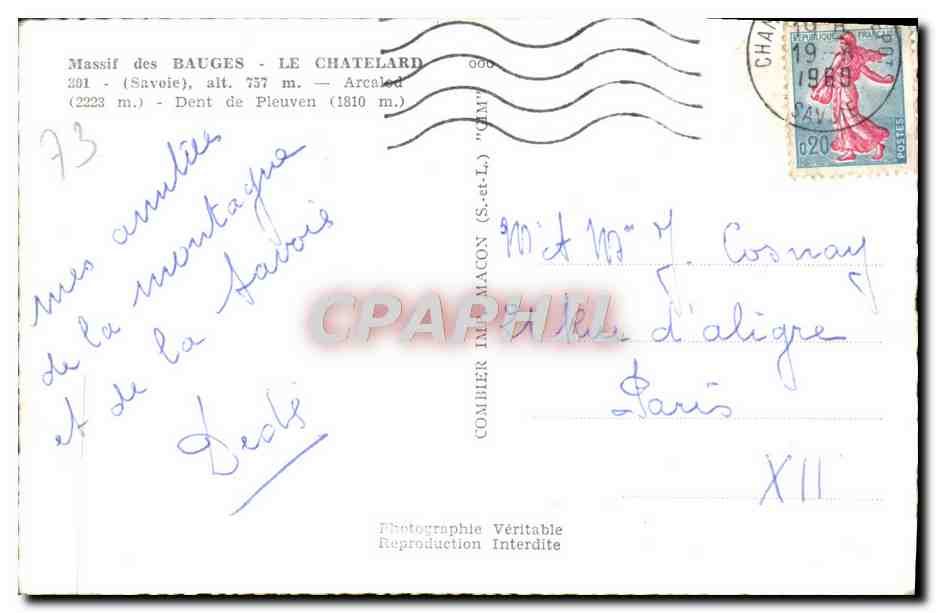 Massif des BAUGES - LE CHATELARD
201 - (Savoie), alt. 757 m. — Arcalod
(2223 m.) - Dent de Pleuven (1810 m.)
73
mes amitiés
de la montagne
et de la Savoie
Dedé
COMBIER IMP. MACON (S.-et-L.) "CIM"
REPUBLIQUE FRANÇAISE
0,20
POSTES
19 -
1960
SAVOIE
Mr et Mme J. Cosnay
Rue d'aligre
Paris
XII
CPAPHIL
Photographie Véritable
Reproduction Interdite